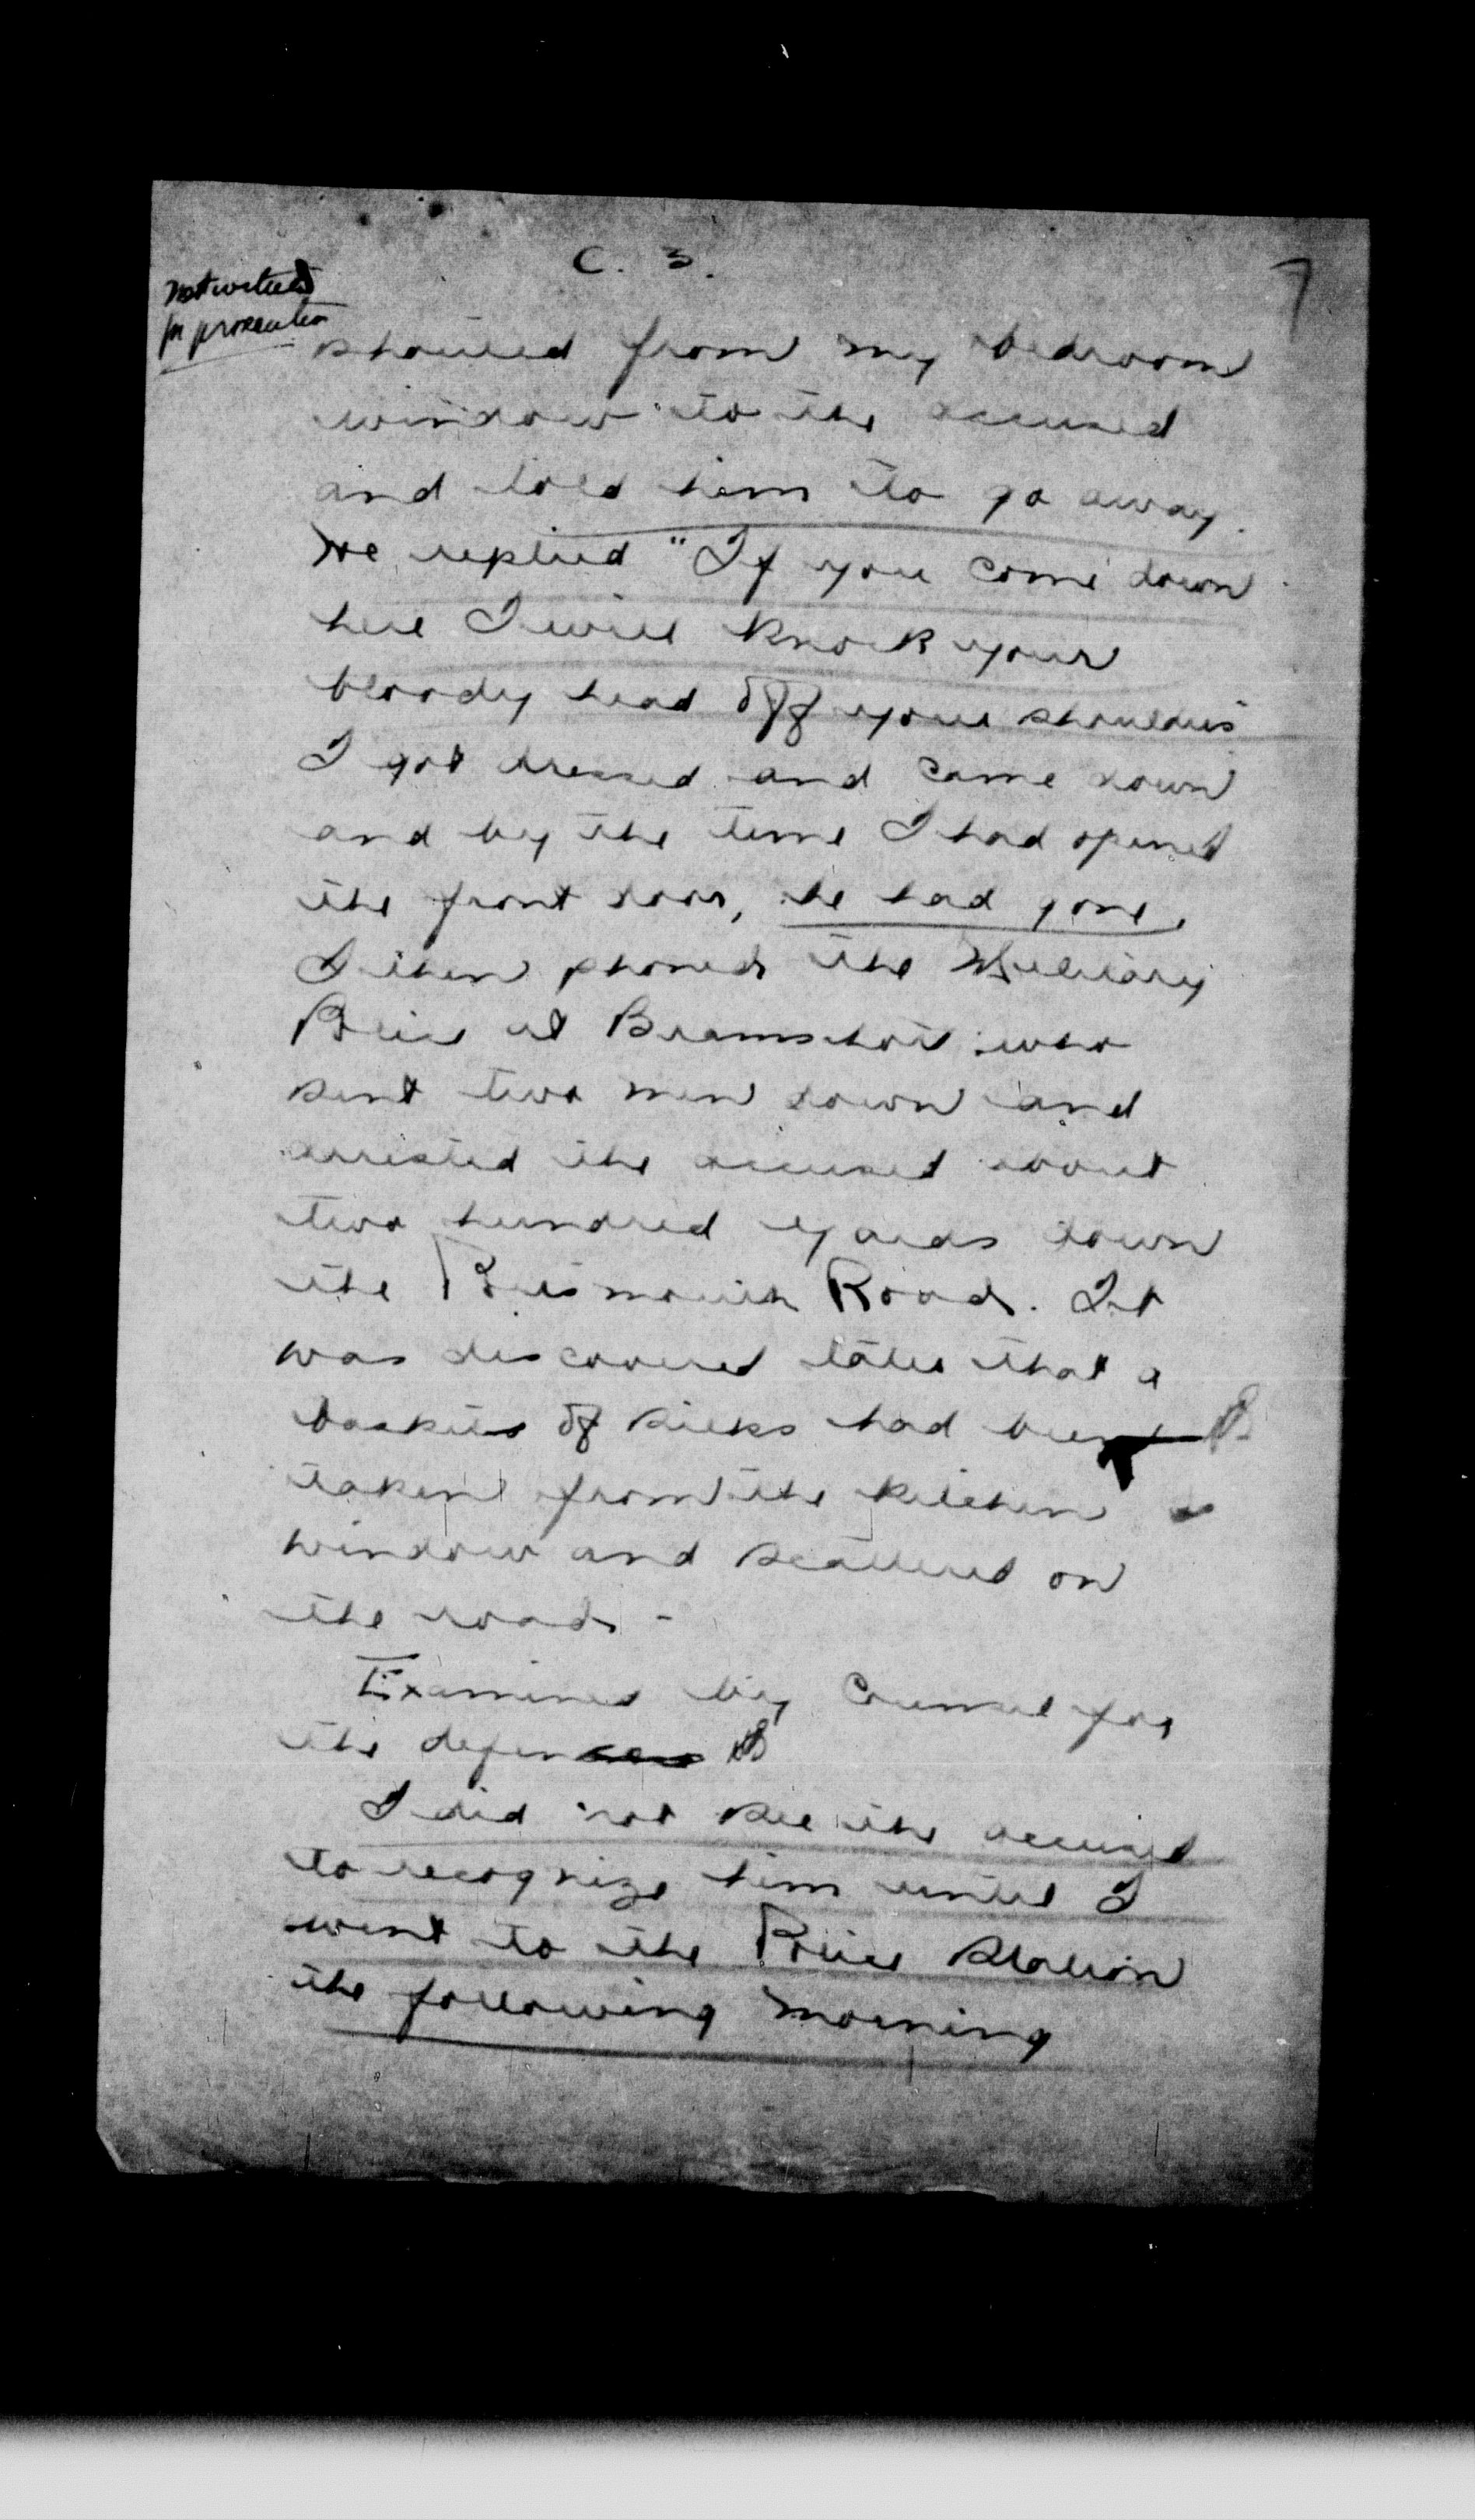 C. 3.
7
1st witness
for prosecution
shouted from my bedroom
window to the accused
and told him to go away.
He replied "If you come down
here I will knock your
bloody head off your shoulders"
I got dressed and came down
and by the time I had opened
the front door, he had gone.
I then phoned the Military
Police at Bramshott who
sent two men down and
arrested the accused about
two hundred yards down
the Portsmouth Road. It
was discovered later that a
basket of silks had been
taken from the kitchen
window and scattered on
the road -
Examined by Counsel for
the defence
I did not see the accused
to recognize him until I
went to the Police Station
the following morning